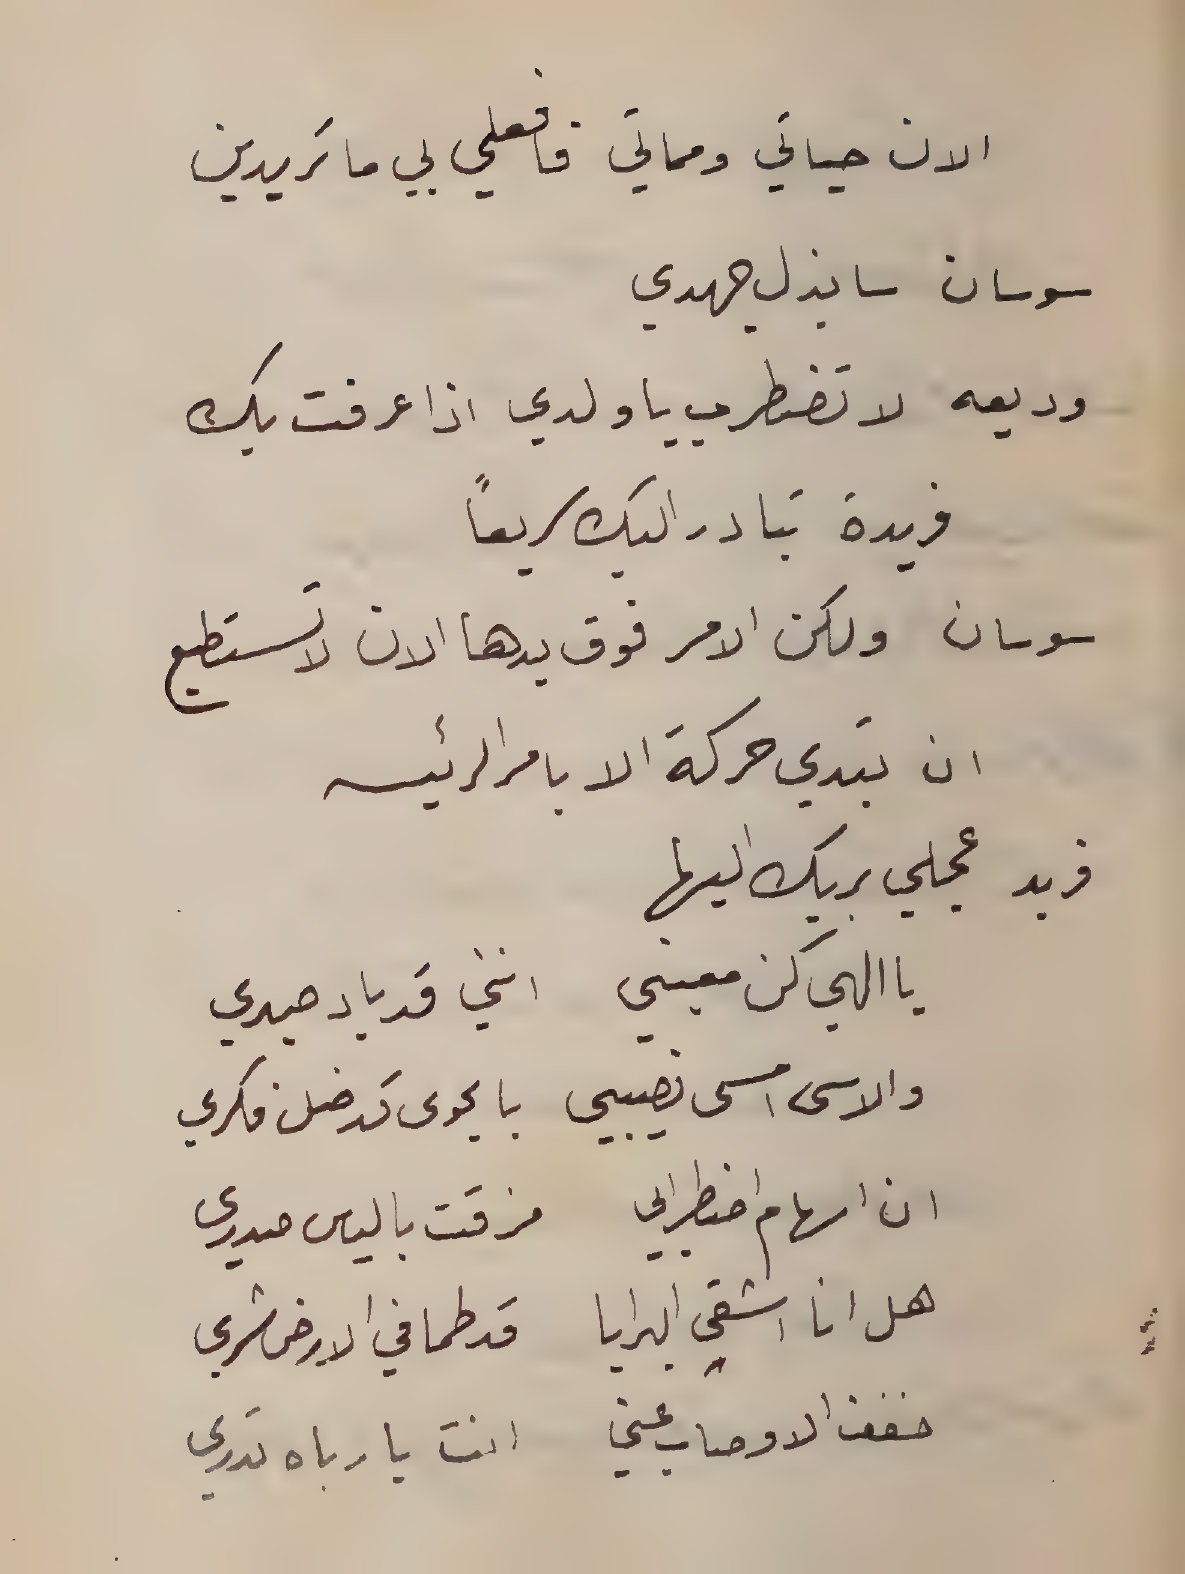 الان حياتي ومماتي فافعلي بي ما تريدين
سوسان سابذل جهدي
وديعه لا تضطرب يا ولدي اذا عرفت بك
فريدة تبادر اليك سريعاً
سوسان ولكن الامر فوق يدها الان لا تستطيع
ان تبتدي حركة الا بامر الرئيسه
فريد عجلي بربك اليها
يا الهي كن معيني انني قد باد صبري
والاسى امسى نصيبي بالجوى قد ضل فكري
ان اسهام اضطرابي مزقت بالياس صدري
هل انا اشقى البرايا قد طما في الارض شري
خفف الاوصاب عني انت يا رباه تدري